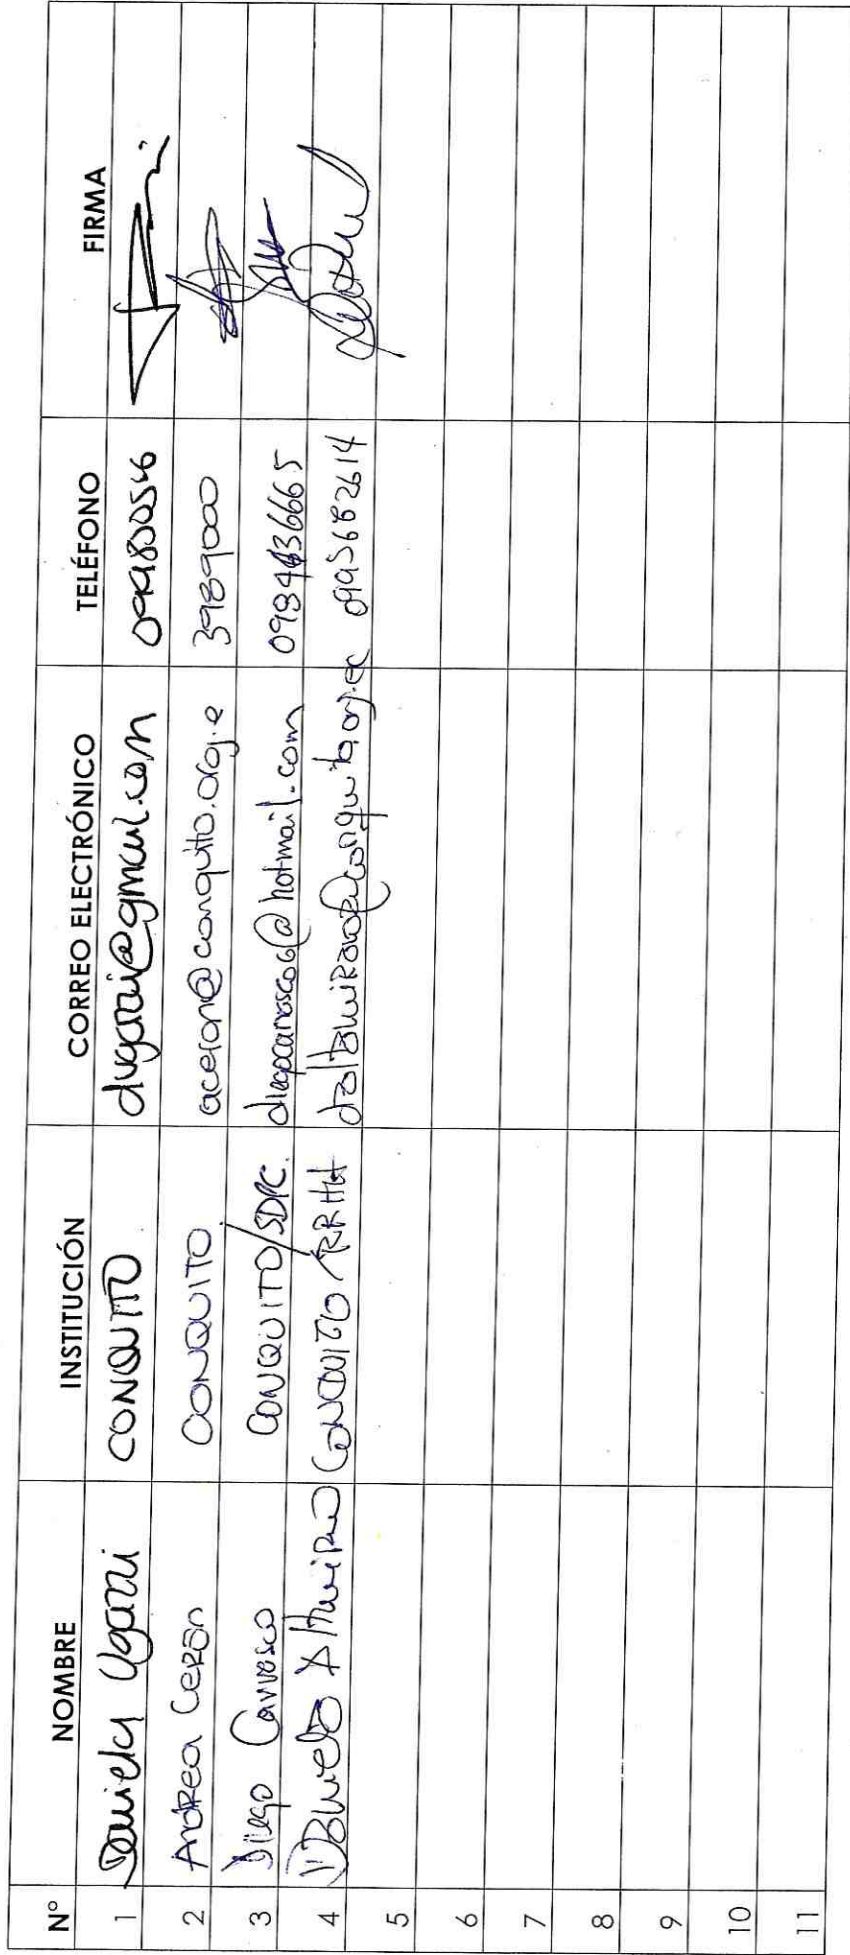 N° NOMBRE INSTITUCIÓN CORREO ELECTRÓNICO TELÉFONO FIRMA
1 Daniela Ugazzi CONQUITO @gmail.com
2 Andrea Cerón CONQUITO aceron@conquito.org.e 3989000
3 Diego Carrasco CONQUITO/SDPC. diegocarrasco6@hotmail.com
4 Daniela Altamirano CONQUITO/RRHH daltamirano@conquito.org.ec
5
6
7
8
9
10
11